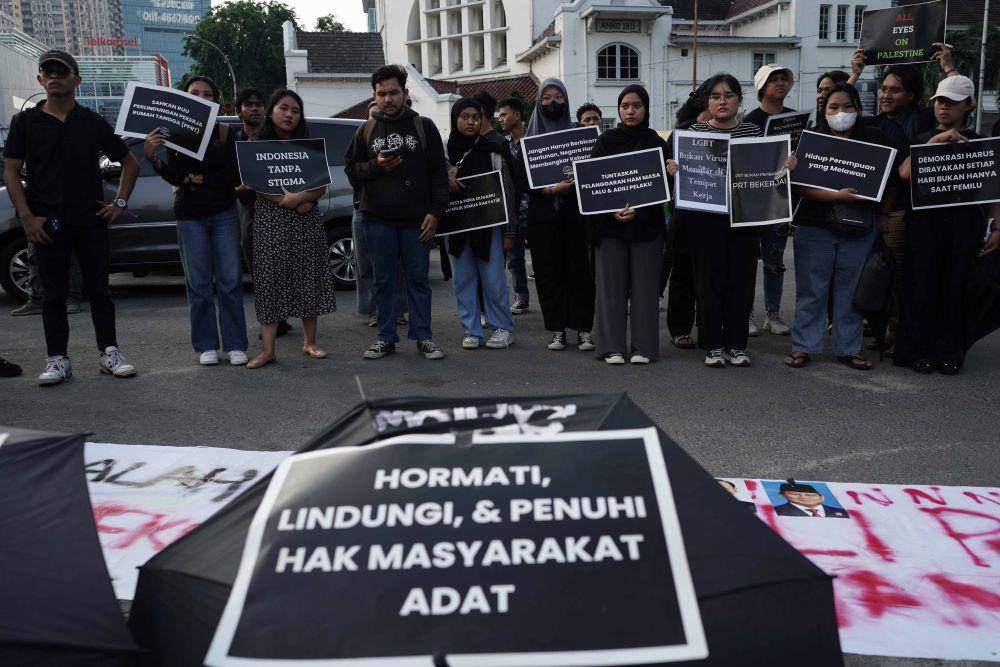 ALL
EYES ON
PALESTINE
ANNO 1915
Telkomsel
SAHKAN RUU
PERLINDUNGAN PEKERJA
RUMAH TANGGA (PPRT)
INDONESIA
TANPA
STIGMA
MILIK RAKYAT
Jangan Hanya Berbicara
Santunan, Negara
TUNTASKAN
PELANGGARAN HAM MASA
LALU & ADILI PELAKU
LGBT
Bukan Virus
Menular di
Tempat
Kerja
PRT BUKAN
PRT BEKERJA
Hidup Perempuan
Yang Melawan
DEMOKRASI HARUS
DIRAYAKAN SETIAP
HARI BUKAN HANYA
SAAT PEMILU
ALAH
HORMATI,
LINDUNGI, & PENUHI
HAK MASYARAKAT
ADAT